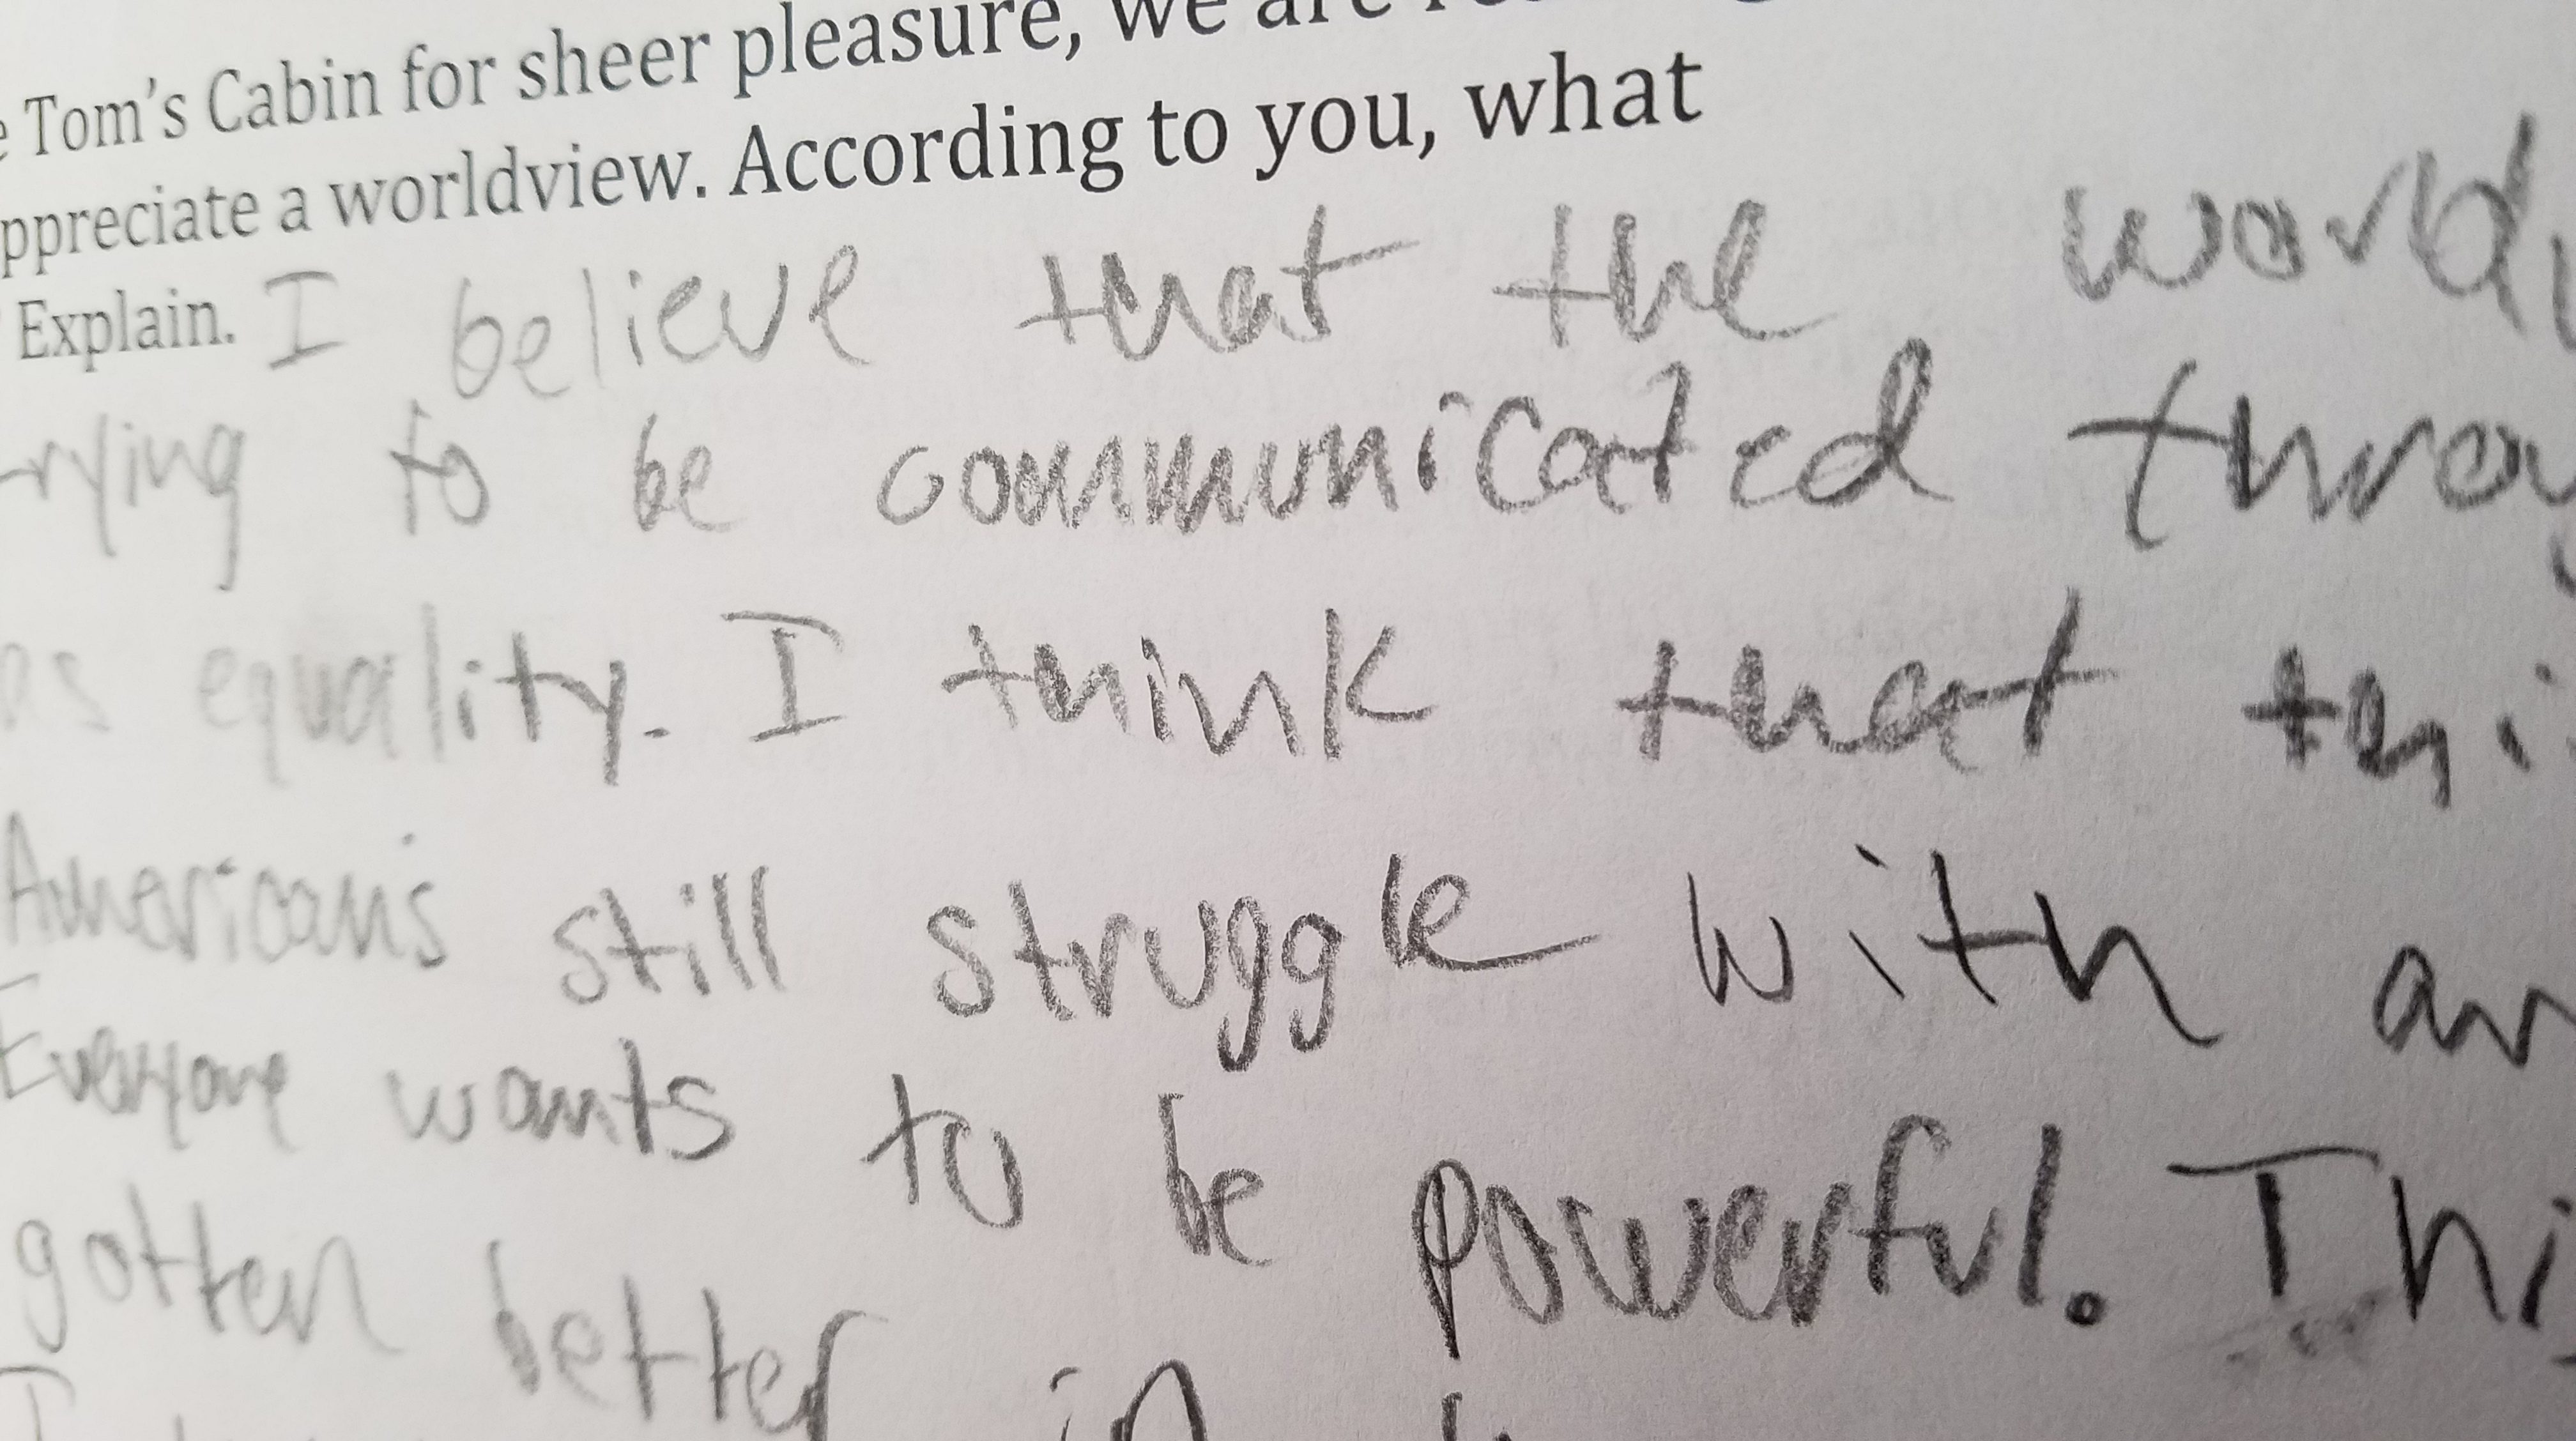 Tom's Cabin for sheer pleasure, we are
ppreciate a worldview. According to you, what
Explain. I believe that the world
rying to be communicated throu
as equality. I think that thi
Americans still struggle with an
Everyone wants to be powerful. Thi
gotten better in